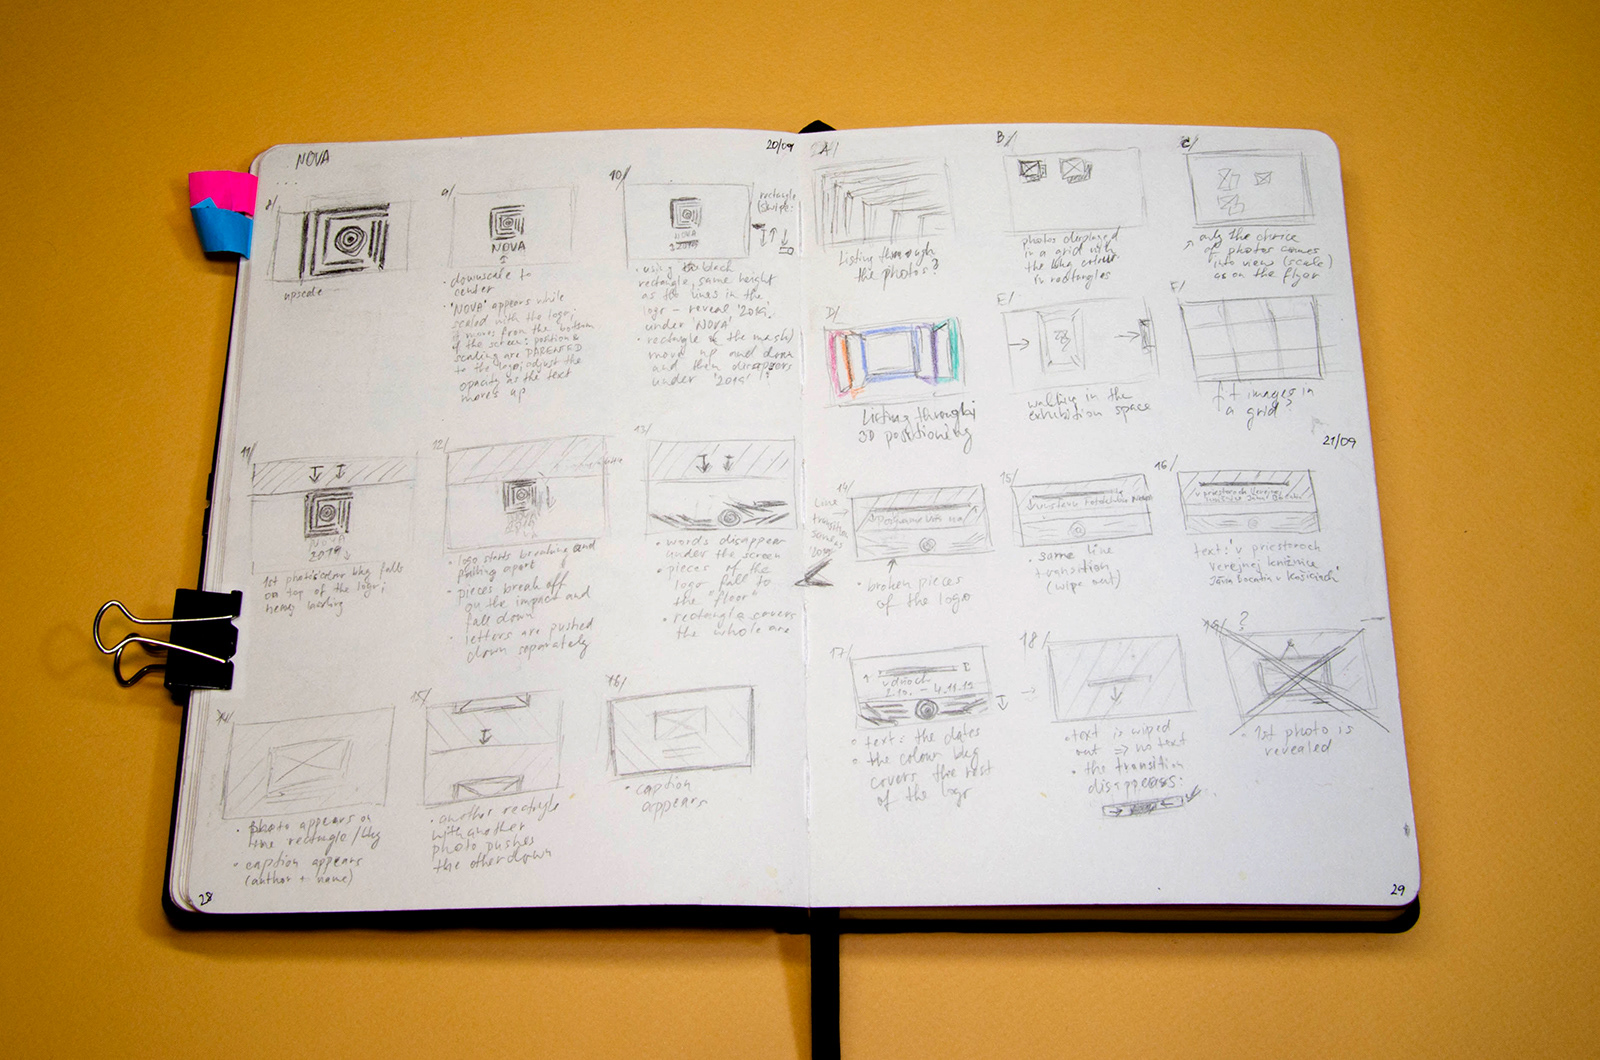 NOVA
20/09
8/
upscale
9/
NOVA
• downscale to
center
• 'NOVA' appears while
scaled with the logo;
it moves from the bottom
of the screen: position &
scaling are PARENTED
to the logo; adjust the
opacity as the text
moves up
10/
NOVA
2019
rectangle
(swipe:
• using the black
rectangle, same height
as the lines in the
logo – reveal '2019'
under 'NOVA'
• rectangle & the mask
move up and down
and then disappears
under '2019'
11/
NOVA
2019
1st photo's color bkg falls
on top of the logo;
heavy landing
12/
• logo starts breaking and
falling apart
• pieces break off
on the impact and
fall down
• letters are pushed
down separately
13/
• words disappear
under the screen
• pieces of the
logo "fall to
the floor"
• rectangle covers
the whole are
14/
• photo appears on
the rectangle / bkg
• caption appears
(author + name)
15/
• another rectngle
with another
photo pushes
the other down
16/
• caption
appears
28
A/
Listing through
the photos?
B/
photos displayed
in a grid with
the bkg colour
in rectangles
C/
only the choice
of photos comes
into view (scale)
as on the flyer
D/
Listing through;
3D positioning
E/
walking in the
exhibition space
F/
fit images in
a grid?
21/09
Line
transition
same as
'2019'
14/
• broken pieces
of the logo
15/
• same line
transition
(wipe out)
16/
text: 'v priestoroch
verejnej knižnice
Jána Bocatia v Košiciach'
17/
v dňoch
2.10. – 4.11.19
• text: the dates
• the colour bkg
covers the rest
of the logo
18/
• text is wiped
out ⇒ no text
• the transition
disappears
19/ ?
• 1st photo is
revealed
29